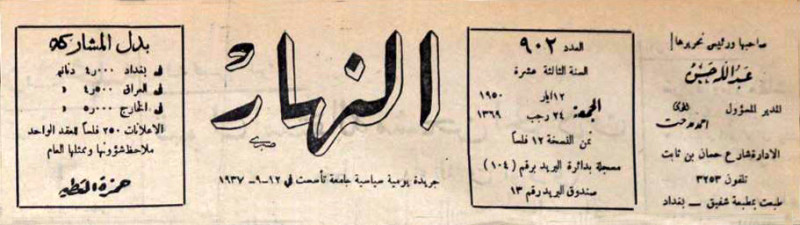 صاحبها ورئيس تحريرها
عبدالله حسن
المدير المسؤول
الادارة شارع حسان بن ثابت
تلفون ٣٢٥٣
طبعت بمطبعة شفيق — بغداد
العدد ٩٠٢
السنة الثالثة عشرة
الجمعة ١٢ ايار ١٩٥٠
٢٤ رجب ١٣٦٩
ثمن النسخة ١٢ فلسا
مسجلة بدائرة البريد برقم (١٠٤)
صندوق البريد رقم ١٣
النهار
صبري
جريدة يومية سياسية جامعة تأسست في ١٢-٩-١٩٣٧
بدل المشاركة
في بغداد ٤٫٠٠٠ دنانير
في العراق ٤٫٥٠٠ »
في الخارج ٥٫٠٠٠ »
الاعلانات ٢٥٠ فلسا للعقد الواحد
ملاحظ شؤونها وممثلها العام
حمزة